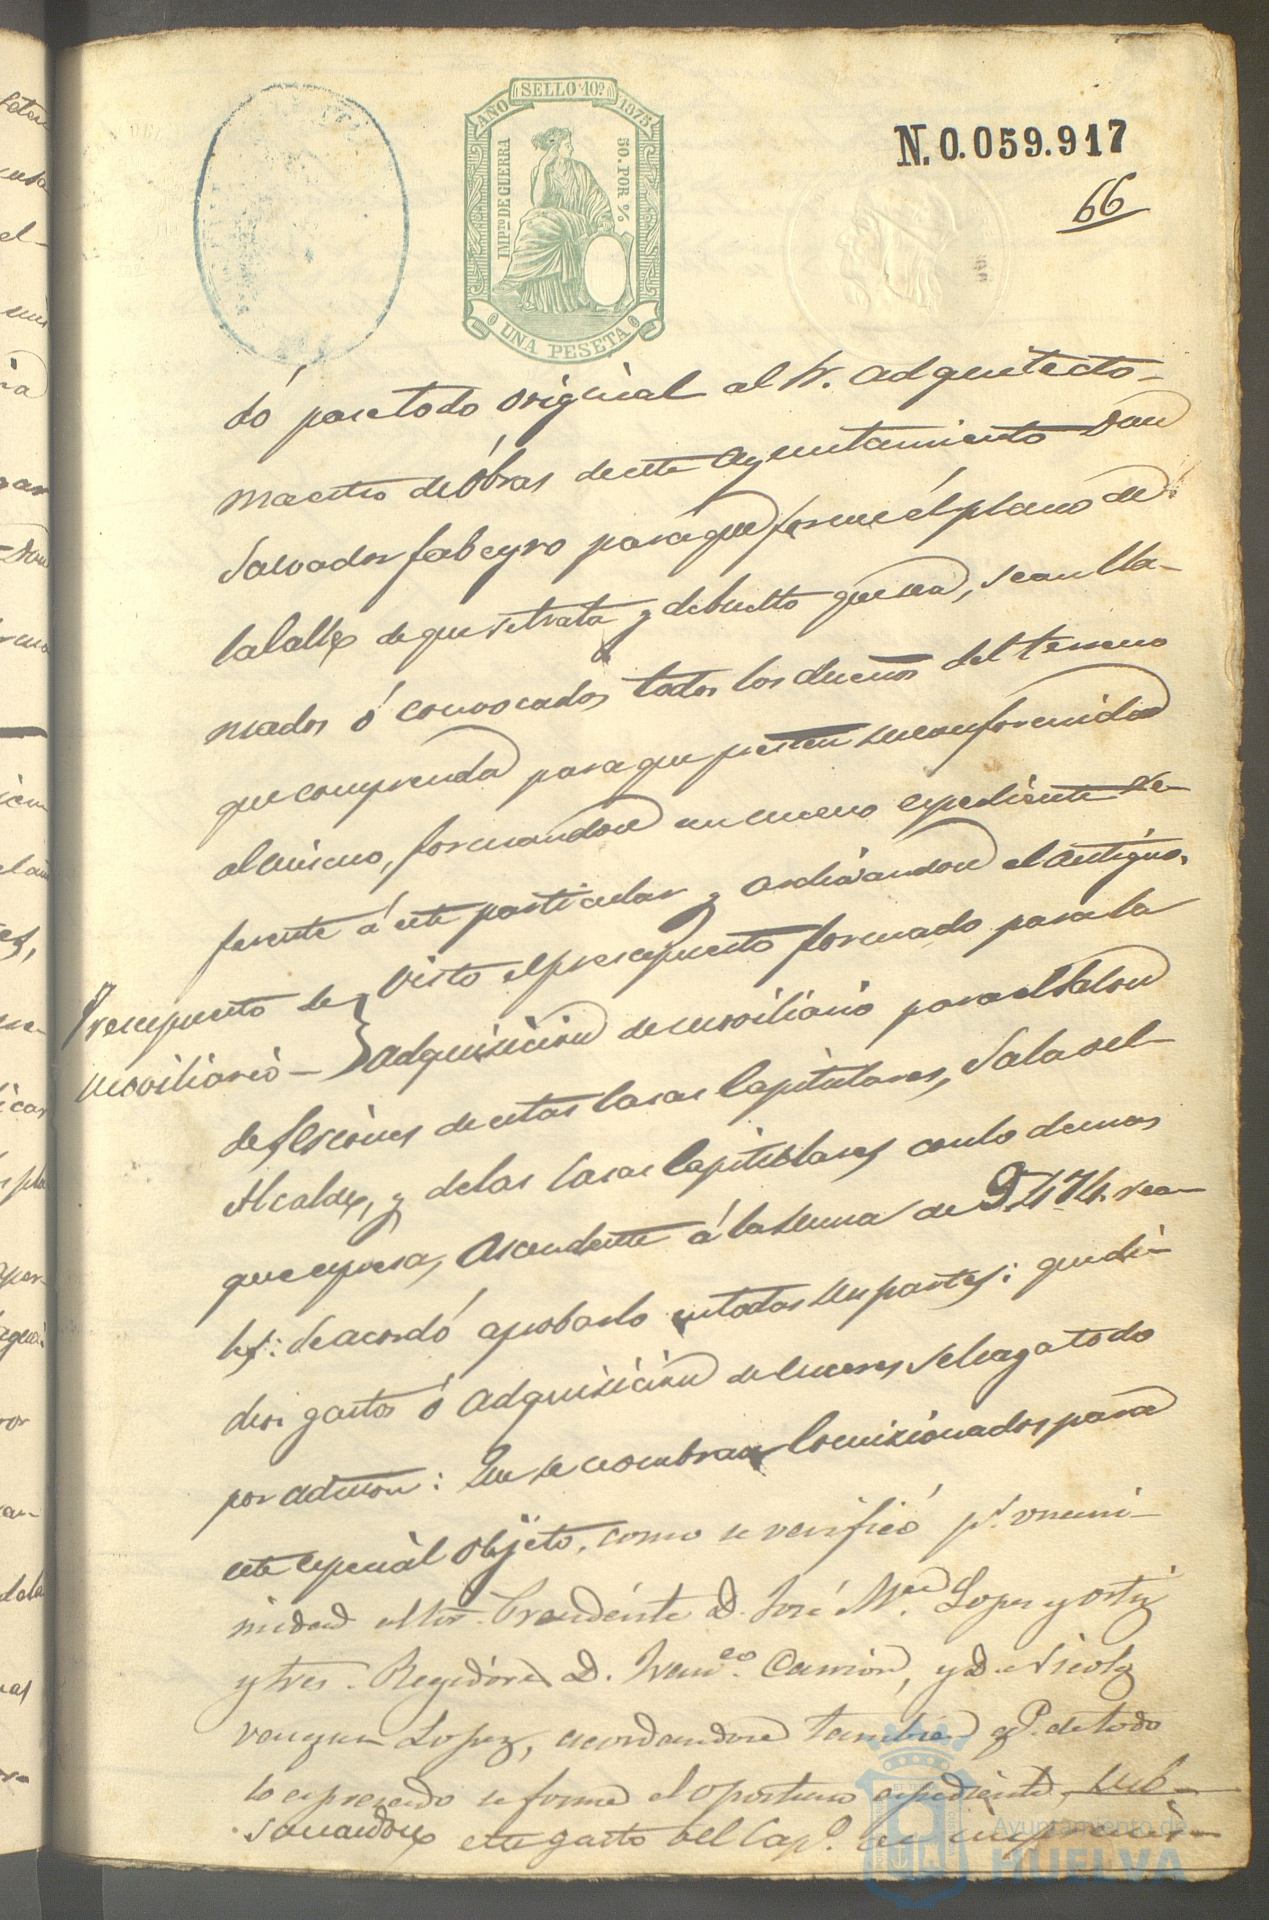 AÑO SELLO 10º 1875
IMPTO DE GUERRA
50. POR %
UNA PESETA
N. 0.059.917
66
dó pase todo original al Sr. Adquitecto-
Maestro de Obras de este Ayuntamiento Don
Salvador fabeyro para que forme el plano de
la Calle de que se trata y debuelto que sea, sean lla-
mados ó convocados todos los dueños del terreno
que comprenda para que presten su conformidad
al mismo, formandose un nuevo expediente re-
ferente á este particular y archivandose el antiguo.
Presupuesto de
moviliario -
Visto el presupuesto formado para la
adquisicion de moviliario para el Salon
de Sesiones de estas Casas Capitulares, Sala del
Alcalde, y de las Casas Capitulares con lo demas
que expresa, Ascendente á la suma de 9.474. rea-
les: Se acordó aprobarlo en todas sus partes: que di-
chos gastos ó adquisicion de enceres se haga todo
por admon: Que se nombran Comisionados para
este especial objeto, como se verificó pr. unani-
midad al Sor. Presidente D. José Ma. Lopez y Ortiz
y Sres. Regidores D. Franco. Carrion, y D. Nicolas
Lopez, acordandose tambien q. de todo
lo expresado se forme el oportuno expediente,
este gasto del Capo. de
Ayuntamiento de
HUELVA